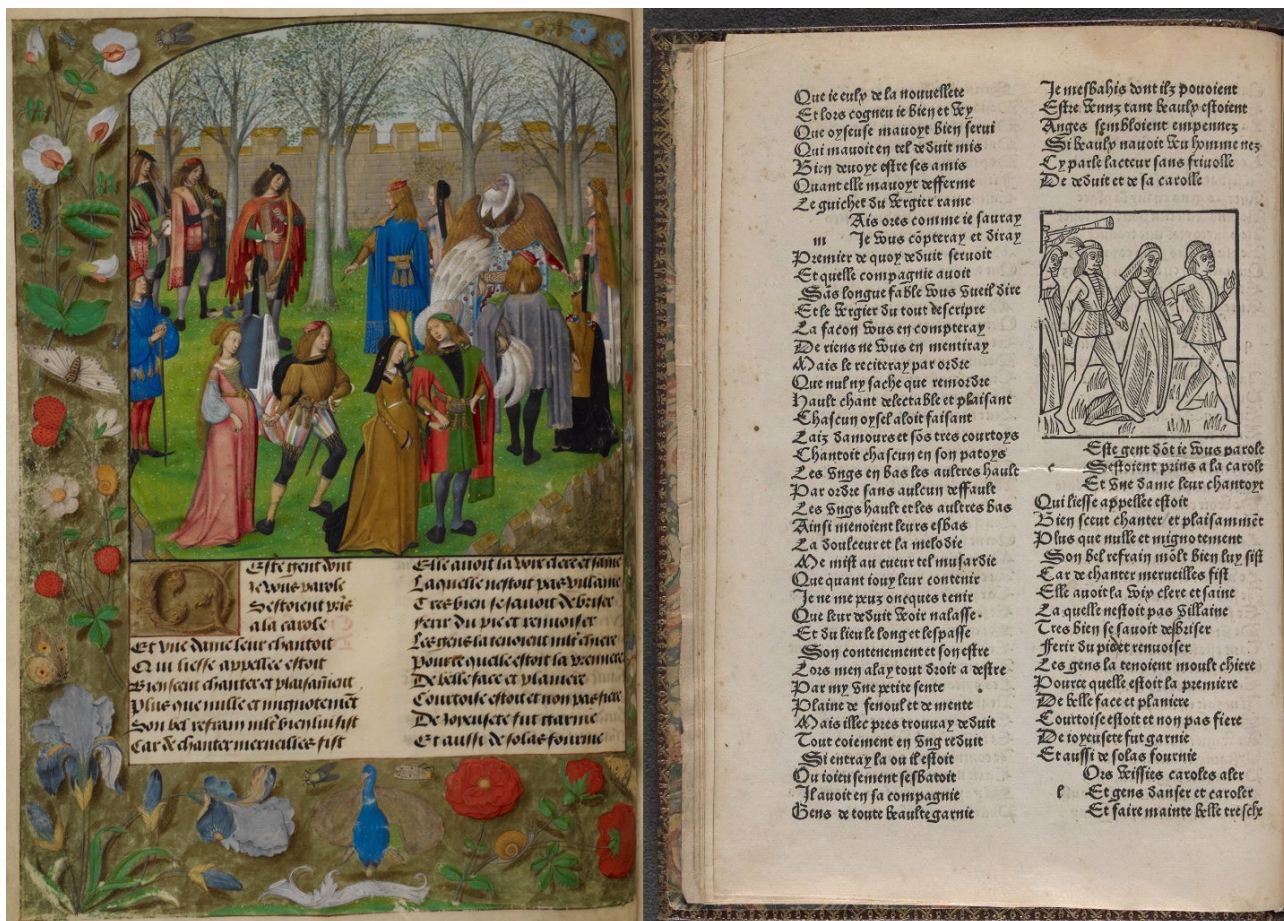 Este gent dont
Je vous parole
Sestoient pris
a la carole
Et vne dame leur chantoit
Qui liesse appellee estoit
Bien sceut chanter et plaisam̃ent
Plus que nulle et mignotemẽt
Son bel refrain mlt̃ bien lui fist
Car de chanter merueilles fist
Elle auoit la voix clere et saine
Laquelle nestoit pas villaine
Tres bien se sauoit de briser
ferir du pie et renuoiser
Les gens la tenoient mlt̃ chiere
Pource quelle estoit la premiere
De belle face et planiere
Courtoise estoit et non pas fiere
De Joyeusete fut garnie
Et aussi de solas fournie
Que ie eulx de la nouuellete
Et lors cogneu ie bien et vy
Que oyseuse mauoyt bien serui
Qui mauoit en tel deduit mis
Bien deuoye estre ses amis
Quant elle mauoyt defferme
Le guichet du vergier rame
Ais ores comme ie sauray
m Je vous cõpteray et diray
Premier de quoy deduit seruoit
Et quelle compagnie auoit
Sãs longue fable vous vueil dire
Et le vergier du tout descripre
La facon vous en compteray
De riens ne vous en mentiray
Mais le reciteray par ordre
Que nul ny sache que remordre
Hault chant delectable et plaisant
Chascun oysel aloit faisant
Laiz damours et sõs tres courtoys
Chantoit chascun en son patoys
Les vngs en bas les aultres hault
Par ordre sans aulcun deffault
Les vngs hault et les aultres bas
Ainsi menoient leurs esbas
La doulceur et la melodie
Me mist au cueur tel musardie
Que quant iouy leur contenir
Je ne me peuz oncques tenir
Que leur deduit veoir nalasse.
Et du lieu le long et lespasse
Son contenement et son estre
Lors men alay tout droit a destre
Par my vne petite sente
Plaine de fenoul et de mente
Mais illec pres trouuay deduit
Tout coiement en vng reduit
Si entray la ou il estoit
Qui ioieusement sesbatoit
Il auoit en sa compagnie
Gens de toute beaulte garnie
Je mesbahis dont ilz pouoient
Estre venuz tant beaulx estoient
Anges sembloient empennez
Si beaulx nauoit veu homme nez
Cy parle lacteur sans friuolle
De deduit et de sa carolle
Este gent dõt ie vous parole
c Sestoient prins a la carole
Et vne dame leur chantoyt
Qui liesse appellee estoit
Bien sceut chanter et plaisammẽt
Plus que nulle et mignotement
Son bel refrain mõlt bien luy fist
Car de chanter merueilles fist
Elle auoit la voix clere et saine
La quelle nestoit pas villaine
Tres bien se sauoit debriser
Ferir du pie et renuoiser
Les gens la tenoient moult chiere
Pource quelle estoit la premiere
De belle face et planiere
Courtoise estoit et non pas fiere
De ioyeusete fut garnie
Et aussi de solas fournie
Ors veissies caroles aler
l Et gens danser et caroler
Et faire mainte belle tresche